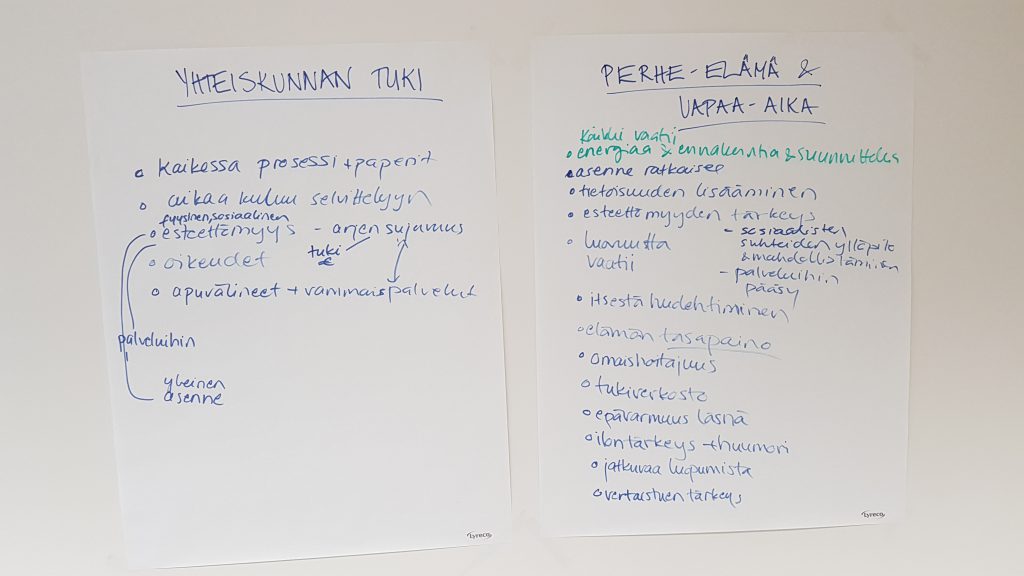 YHTEISKUNNAN TUKI
• kaikessa prosessi + paperit
• aikaa kuluu selvittelyyn
fyysinen, sosiaalinen
• esteettömyys - arjen sujuvuus
tuki
€
• oikeudet
• apuvälineet + vammaispalvelut
palveluihin
yleinen
asenne
Lyreco
PERHE-ELÄMÄ &
VAPAA-AIKA
Kaikki vaatii
• energiaa & ennakointia & suunnittelua
• asenne ratkaisee
• tietoisuuden lisääminen
• esteettömyyden tärkeys
- sosiaalisten
suhteiden ylläpito
& mahdollistaminen
- palveluihin
pääsy
• luovuutta
vaatii
• itsestä huolehtiminen
• elämän tasapaino
• omaishoitajuus
• tukiverkosto
• epävarmuus läsnä
• ilon tärkeys + huumori
• jatkuvaa luopumista
• vertaistuen tärkeys
Lyreco